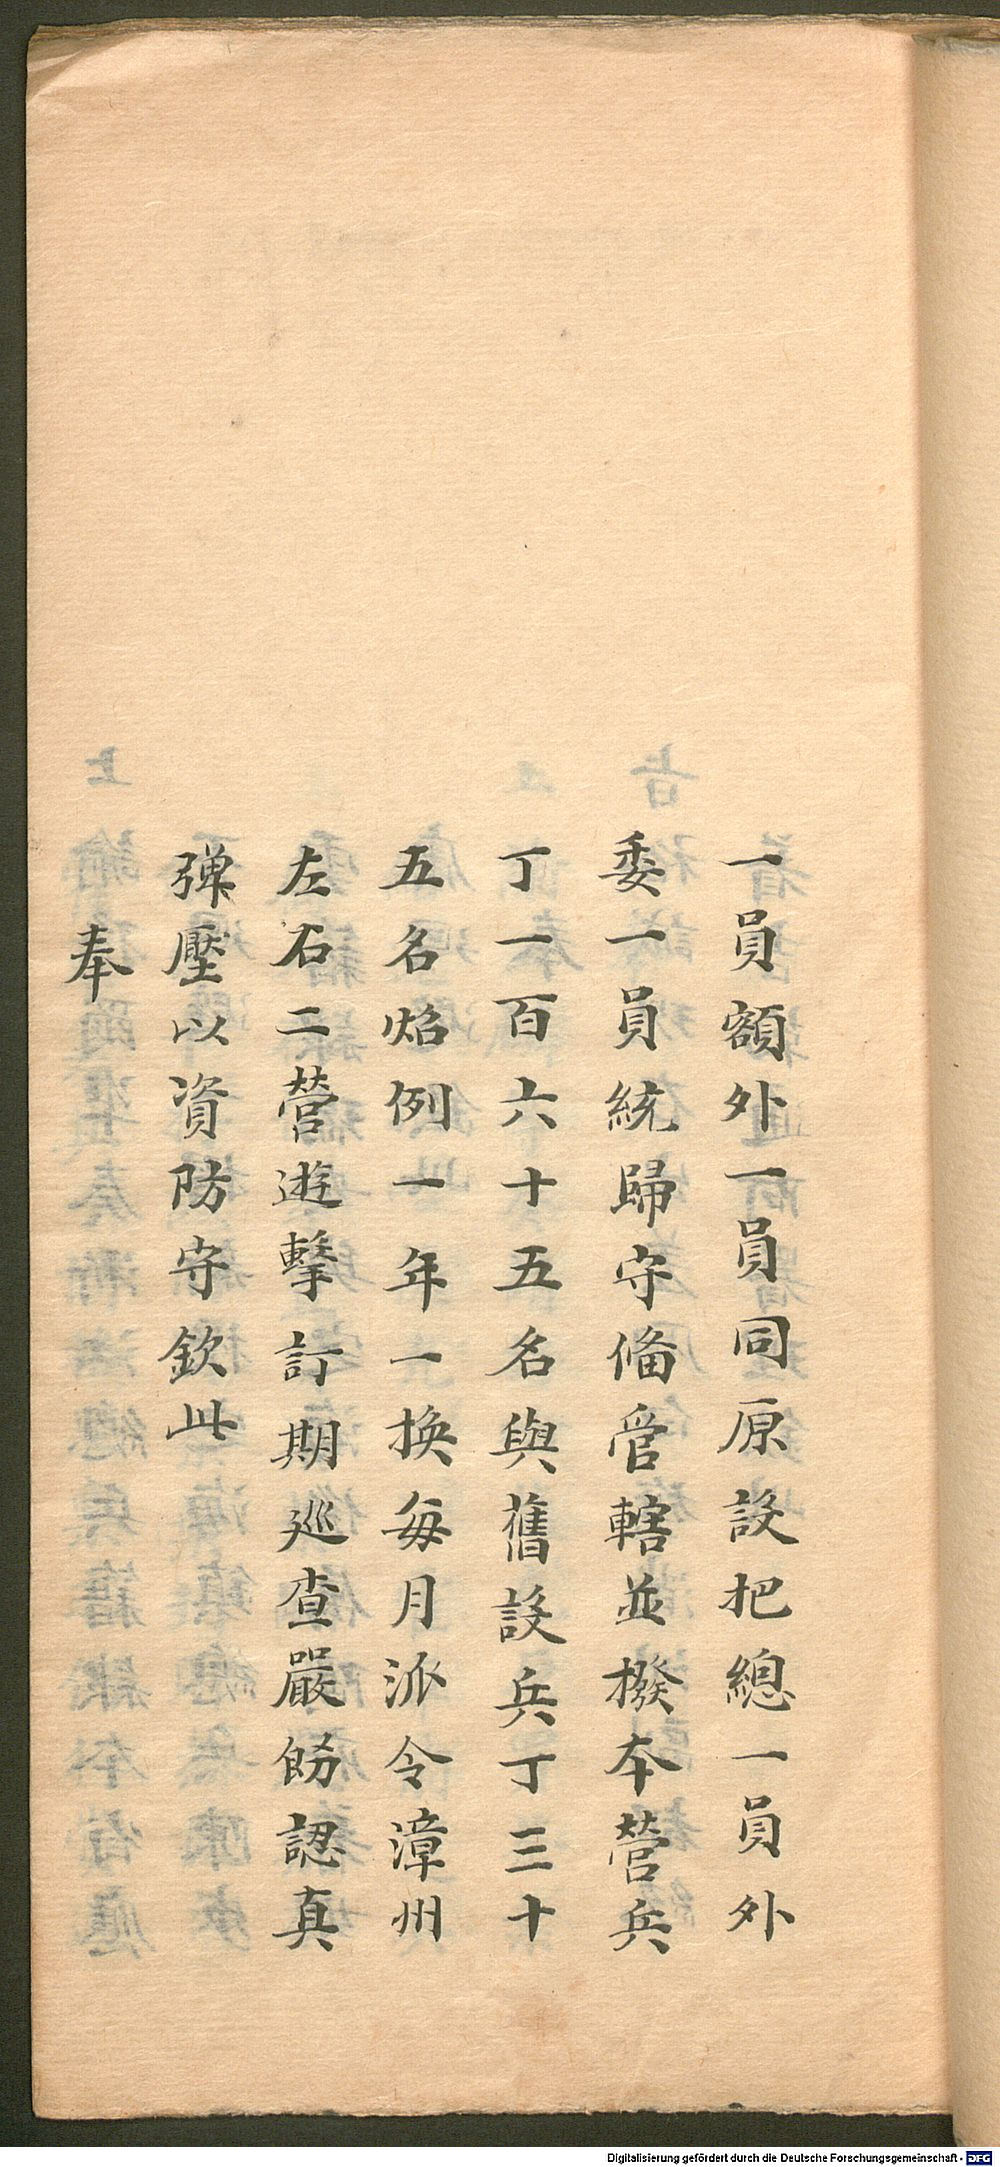 一員額外一員同原設把總一員外
委一員統歸守俻管轄並撥本營兵
丁一百六十五名與舊設兵丁三十
五名焰例一年一換每月派令漳州
左右二營遊擊訂期巡查嚴飭認真
弹壓以資防守欽此
奉
Digitalisierung gefördert durch die Deutsche Forschungsgemeinschaft - DFG